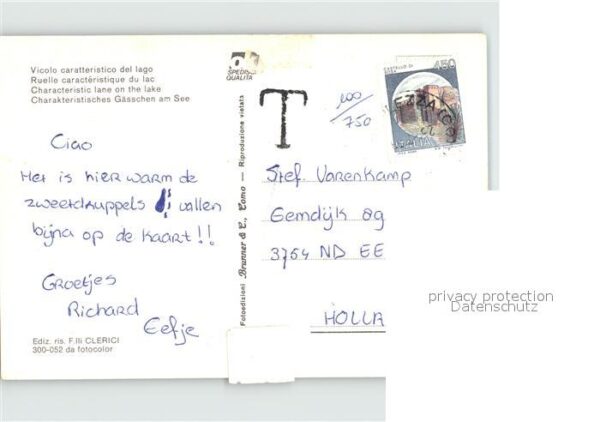 Vicolo caratteristico del lago
Ruelle caractéristique du lac
Characteristic lane on the lake
Charakteristisches Gässchen am See
Ciao
Het is hier warm de
zweetdruppels vallen
bijna op de kaart!!
Groetjes
Richard
Eefje
Ediz. ris. F.lli CLERICI
300-052 da fotocolor
Fotoedizioni Brunner & C., Como — Riproduzione vietata
SPEDIS
QUALITÀ
T
100
750
CASTELLO DI
450
ITALIA
EZZA (CO
Stef Varenkamp
Eemdijk 89
3754 ND EE
HOLLA
privacy protection
Datenschutz